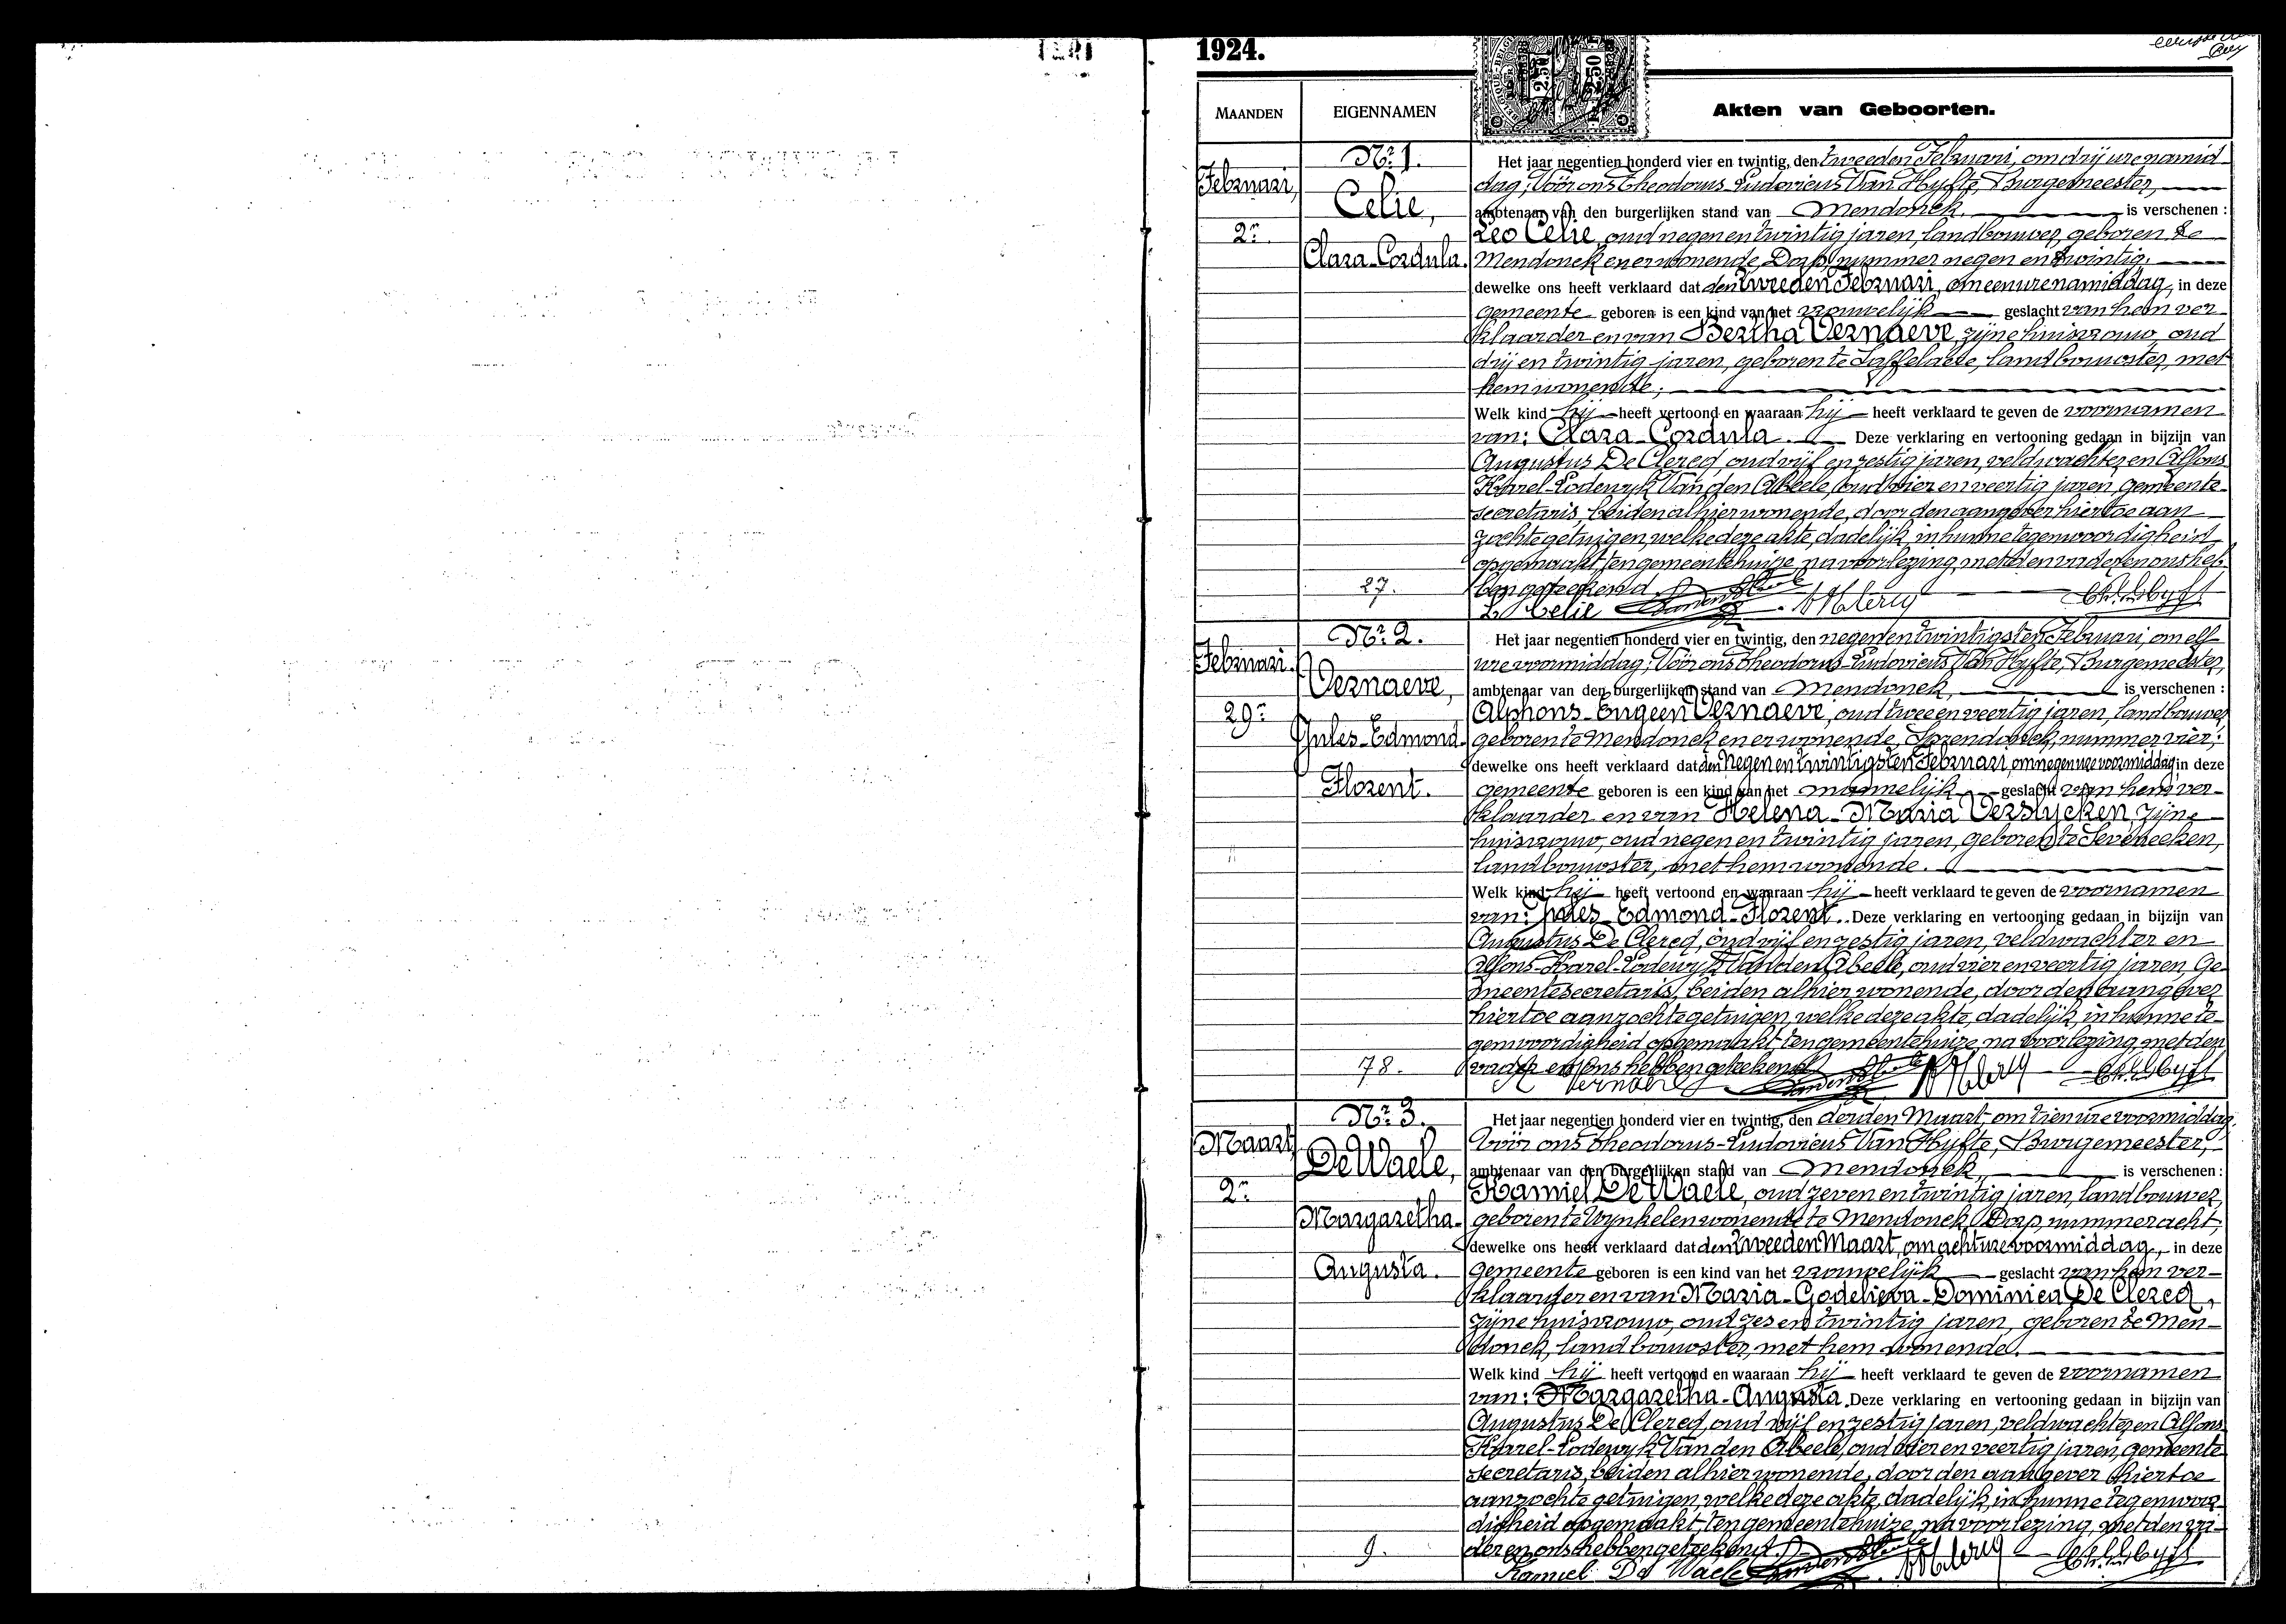 1924.
MAANDEN
EIGENNAMEN
Akten van Geboorten.
Februari,
2n
Nr. 1.
Celie,
Clara-Cordula.
27.
Het jaar negentien honderd vier en twintig, den tweeden Februari, om drij ure namid-
dag; Vóór ons Theodorus-Ludovicus Van Hyfte, Burgemeester,
ambtenaar van den burgerlijken stand van Mendonck, is verschenen :
Leo Celie, oud negen en twintig jaren, landbouwer, geboren te
Mendonck en er wonende, Dorp, nummer negen en twintig,
dewelke ons heeft verklaard dat den tweeden Februari, om een ure namiddag, in deze
gemeente geboren is een kind van het vrouwelijk geslacht van hem ver-
klaarder en van Bertha Vernaeve, zijne huisvrouw, oud
drij en twintig jaren, geboren te Saffelaere, landbouwster, met
hem wonende;
Welk kind hij heeft vertoond en waaraan hij heeft verklaard te geven de voornamen
van: Clara-Cordula. Deze verklaring en vertooning gedaan in bijzijn van
Augustus De Clercq, oud vijf en zestig jaren, veldwachter en Alfons
Karel-Lodewyk Van den Abeele, oud vier en veertig jaren, gemeente-
secretaris, beiden alhier wonende, door den aangever hiertoe aan
zochte getuigen, welke deze akte, dadelijk, in hunne tegenwoordigheid
opgemaakt, ten gemeentehuize, na voorlezing, met den vader en ons heb-
ben geteekend.
L. Celie
Februari.
29n
Nr. 2.
Vernaeve,
Jules-Edmond-
Florent.
78.
Het jaar negentien honderd vier en twintig, den negen en twintigsten Februari, om elf
ure voormiddag; Vóór ons Theodorus-Ludovicus Van Hyfte, Burgemeester,
ambtenaar van den burgerlijken stand van Mendonck, is verschenen :
Alphons-Eugeen Vernaeve, oud twee en veertig jaren, landbouwer,
geboren te Mendonck en er wonende, Sprendonck, nummer vier;
dewelke ons heeft verklaard dat den negen en twintigsten Februari, om negen ure voormiddag, in deze
gemeente geboren is een kind van het mannelijk geslacht van hem ver-
klaarder en van Helena-Maria Verslycken, zijne
huisvrouw, oud negen en twintig jaren, geboren te Seveneeken,
landbouwster, met hem wonende.
Welk kind hij heeft vertoond en waaraan hij heeft verklaard te geven de voornamen
van: Jules-Edmond-Florent. Deze verklaring en vertooning gedaan in bijzijn van
Augustus De Clercq, oud vijf en zestig jaren, veldwachter en
Alfons-Karel-Lodewyk Van den Abeele, oud vier en veertig jaren, Ge-
meentesecretaris, beiden alhier wonende, door den aangever
hiertoe aanzochte getuigen, welke deze akte, dadelijk, in hunne te-
genwoordigheid opgemaakt, ten gemeentehuize, na voorlezing, met den
vader en ons hebben geteekend.
Maart,
2n
Nr. 3.
De Waele,
Margaretha-
Augusta.
9.
Het jaar negentien honderd vier en twintig, den derden Maart, om tien ure voormiddag,
Vóór ons Theodorus-Ludovicus Van Hyfte, Burgemeester,
ambtenaar van den burgerlijken stand van Mendonck, is verschenen :
Kamiel De Waele, oud zeven en twintig jaren, landbouwer,
geboren te Wynkel en wonende te Mendonck, Dorp, nummer acht;
dewelke ons heeft verklaard dat den tweeden Maart, om acht ure voormiddag, in deze
gemeente geboren is een kind van het vrouwelijk geslacht van hem ver-
klaarder en van Maria-Godelieva-Dominica De Clercq,
zijne huisvrouw, oud zes en twintig jaren, geboren te Men-
donck, landbouwster, met hem wonende.
Welk kind hij heeft vertoond en waaraan hij heeft verklaard te geven de voornamen
van: Margaretha-Augusta. Deze verklaring en vertooning gedaan in bijzijn van
Augustus De Clercq, oud vijf en zestig jaren, veldwachter en Alfons
Karel-Lodewyk Van den Abeele, oud vier en veertig jaren, gemeente
secretaris, beiden alhier wonende, door den aangever hiertoe
aanzochte getuigen, welke deze akte, dadelijk, in hunne tegenwoor-
digheid opgemaakt, ten gemeentehuize, na voorlezing, met den va-
der en ons hebben geteekend.
Kamiel De Waele